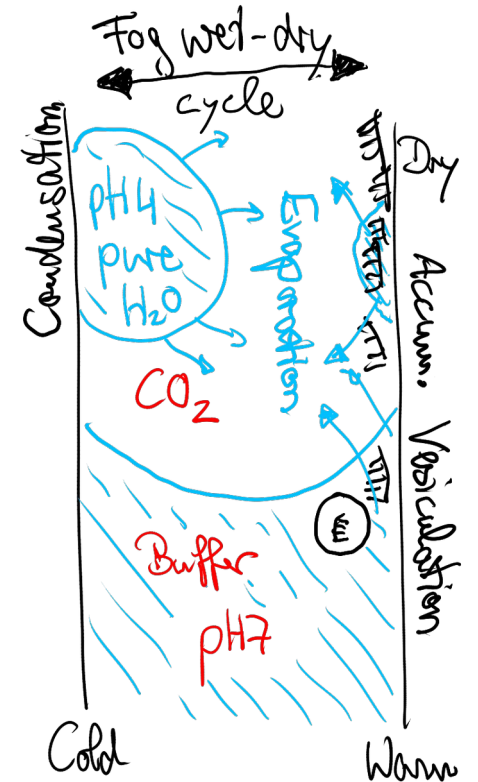 Fog wet-dry
cycle
Condensation
pH4
pure
H₂O
Evaporation
Dry
Accum.
Vesiculation
CO₂
Buffer
pH7
Cold
Warm